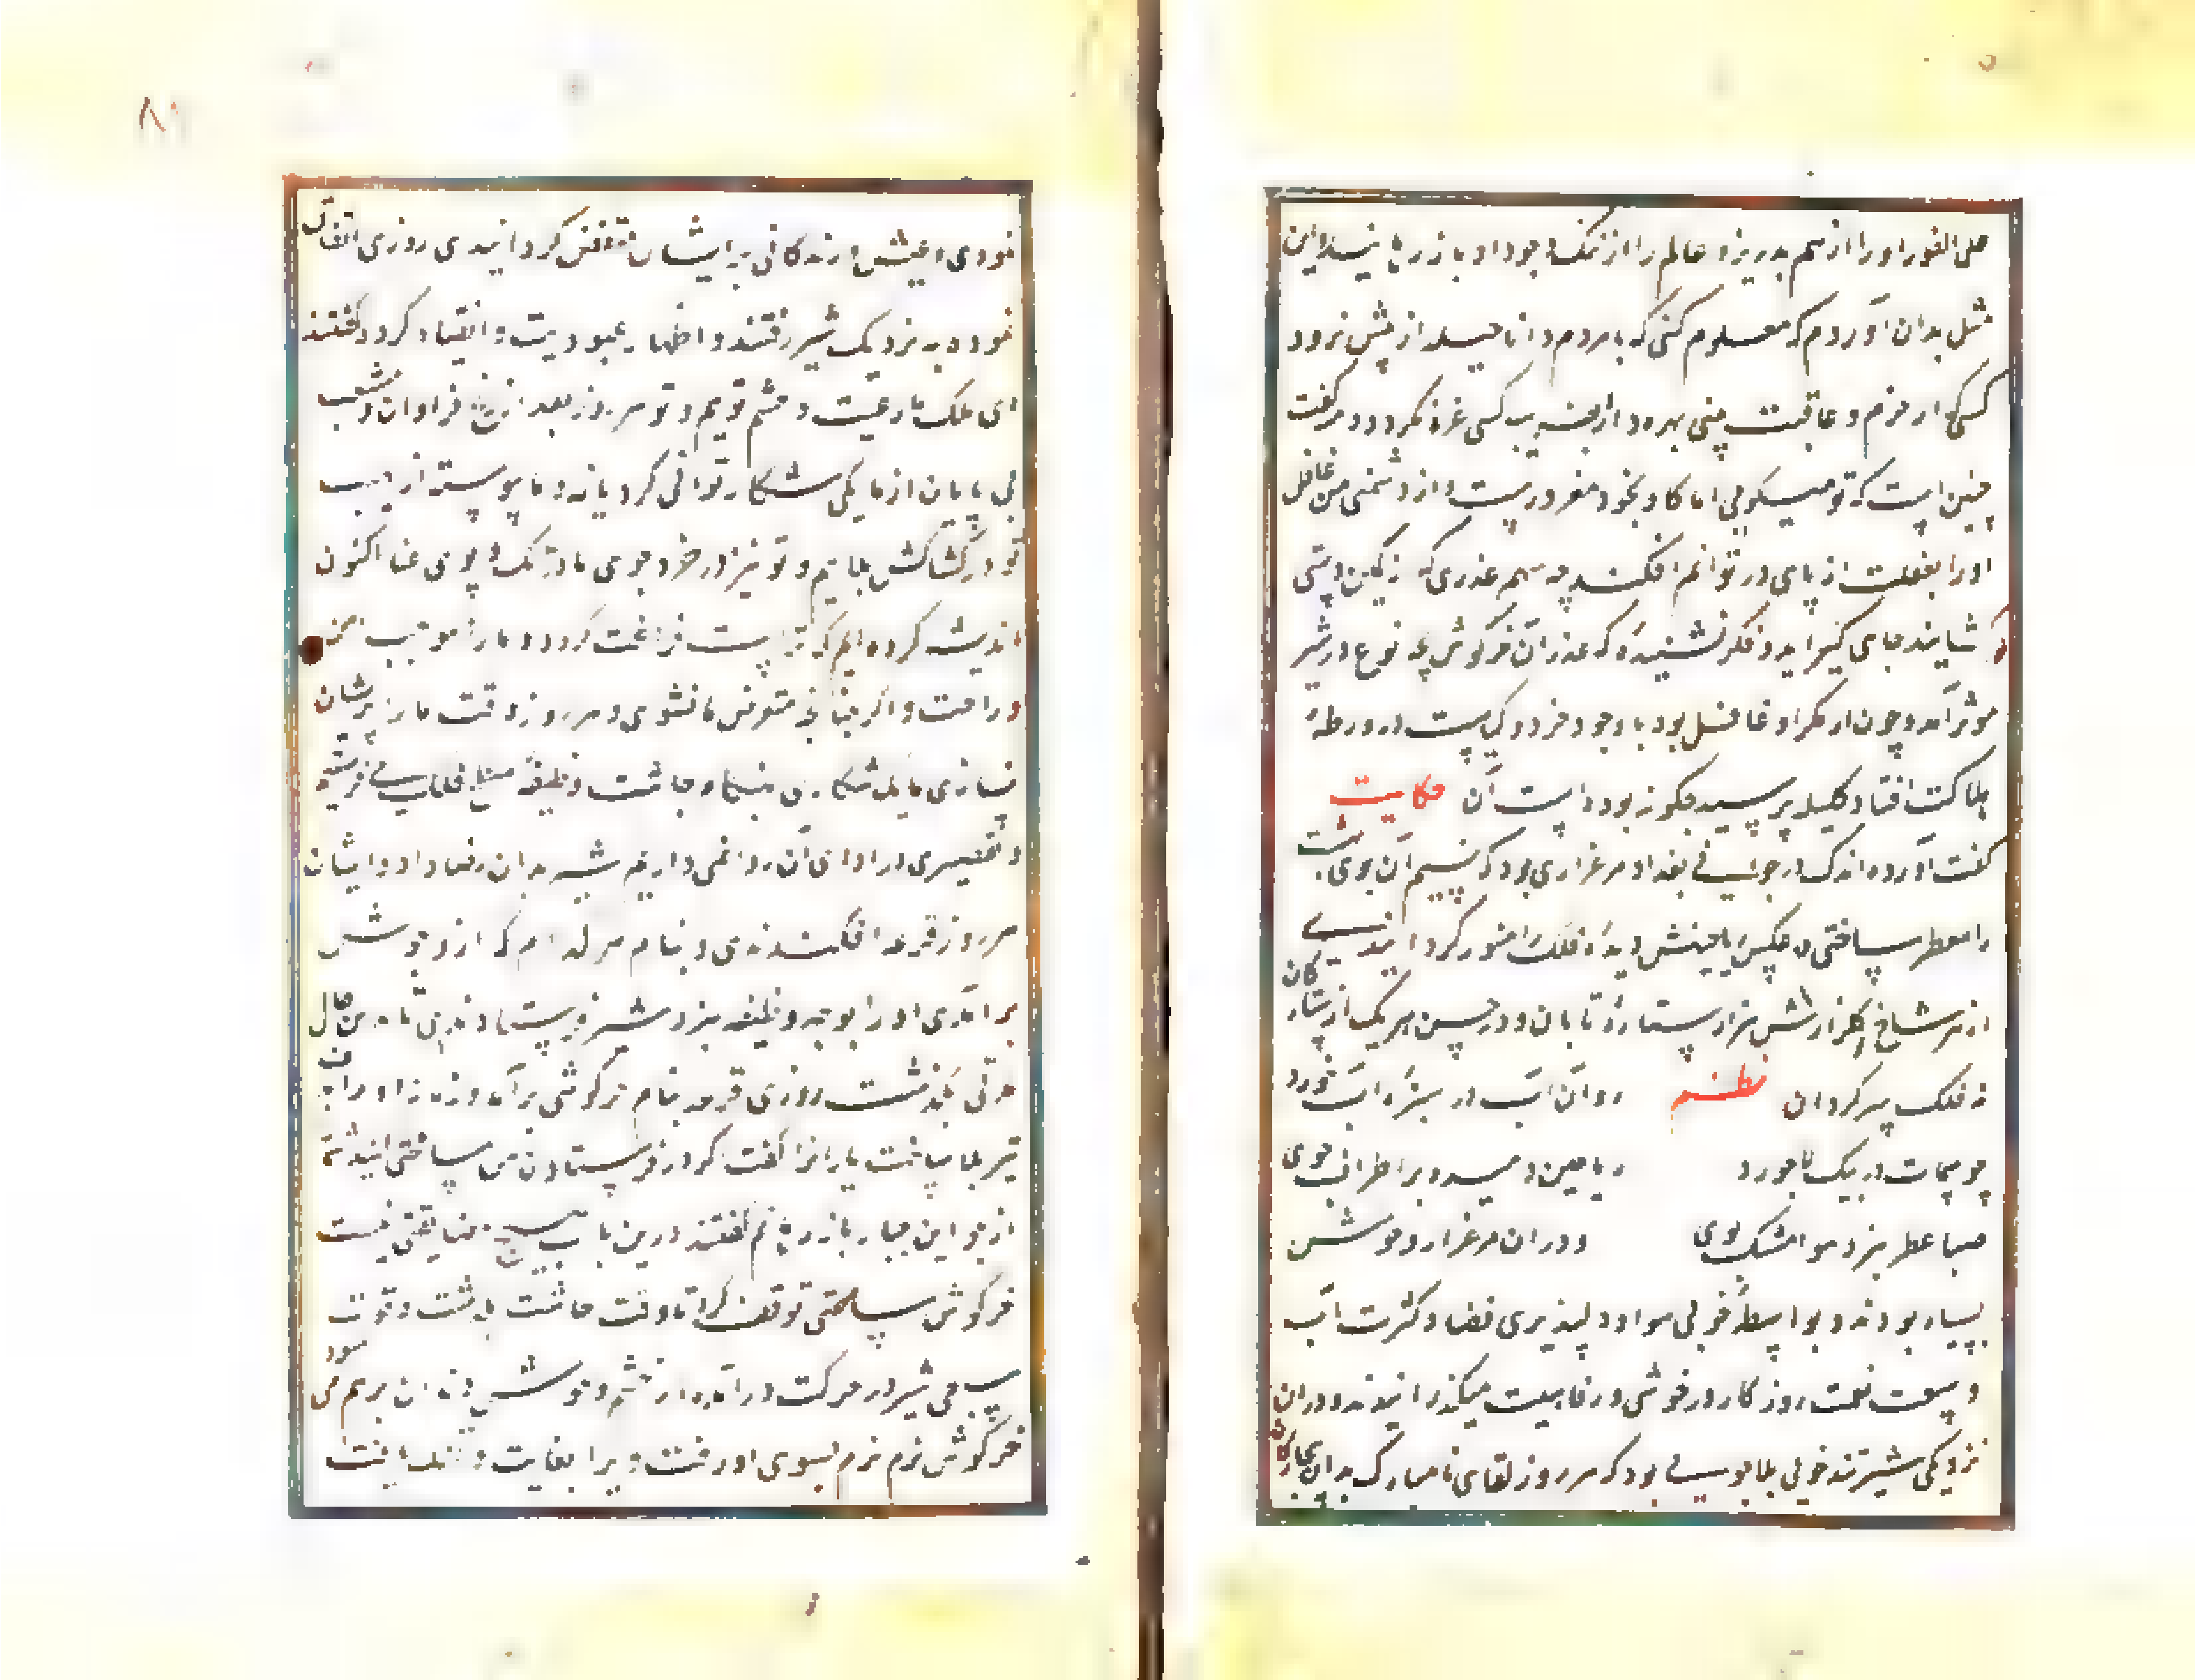 علی الفور او را از هم بدرید و عالم را از ننگ وجود او باز رهانید و این
مثل بدان آوردم که معلوم کنی که با مردم دانا حیله از پیش نرود
کسی که از حزم و عاقبت بینی بهره دارد بفریب کسی غره نگردد دمنه گفت
چنین است که تو میگویی اما گاو بخود مغرور است و از دشمنی من غافل
او را بغفلت از پای در توانم افکند چه سهم غدری که از کمین دوستی
گشایند جای گیر آید و مگر نشنیده که غدر آن خرگوش چه نوع در شیر
مؤثر آمد و چون از مکر او غافل بود با وجود خرد و کیاست در ورطه
هلاکت افتاد کلیله پرسید چگونه بوده است آن حکایت
گفت آورده اند که در حوالی بغداد مرغزاری بود که نسیم آن بوی بهشت
را معطر ساختی و عکس ریاحینش دیده فلک را منور گردانیدی
از هر شاخ گلزارش هزار ستاره تابان و در حسن هر یک از ستارگان
نه فلک سرگردان نظم روان آب در سبزه آب خورد
چو سیماب در پیکر لاجورد ریاحین دمیده بر اطراف جوی
صبا عطر بیز و هوا مشک بوی و در آن مرغزار وحوش
بسیار بودند و بواسطه خوبی هوا و دلپذیری فضا و کثرت آب
و وسعت نعمت روزگار در خوشی و رفاهیت میگذرانیدند و در آن
نزدیکی شیری تندخوی بلاجویی بود که هر روز لقای نامبارک بدان بیچارگان
نمودی و عیش و زندگانی بر ایشان منغص گردانیدی روزی اتفاق
نموده به نزدیک شیر رفتند و اظهار عبودیت و انقیاد کرده گفتند
ای ملک ما رعیت و حشم توییم و تو هر روز بعد از رنج فراوان و تعب
بی پایان از ما یکی شکار توانی کرد یا نه و ما پیوسته از نهیب
تو در کشاکش بلاییم و تو نیز در جستجوی ما در تک و پوی عنا اکنون
اندیشه کرده ایم که ترا سبب فراغت گردد و ما را موجب امن
و راحت و اگر چنانچه متعرض ما نشوی و هر روز وقت ما را پریشان
نسازی ما یک شکاری هنگام چاشت وظیفه مطبخ ملک می فرستیم
و تقصیری در ادای آن روا نمی داریم شیر بدان رضا داد و ایشان
هر روز قرعه افکندندی و بنام هر کدام که از وحوش
برآمدی او را بوجه وظیفه نزد شیر فرستادندی تا برین حال
مدتی بگذشت روزی قرعه بنام خرگوشی برآمد و زمانه او را هدف
تیر بلا ساخت یاران را گفت که در فرستادن من ساعتی
از جور این جبار باز رهانم گفتند درین باب هیچ مضایقتی نیست
خرگوش ساعتی توقف کرد تا وقت چاشت بگذشت و قوت
سبعی شیر در حرکت درآمده از خشم و خروش دندان بر هم می سود
خرگوش نرم نرم بسوی او رفت و ویرا بغایت دلتنگ یافت